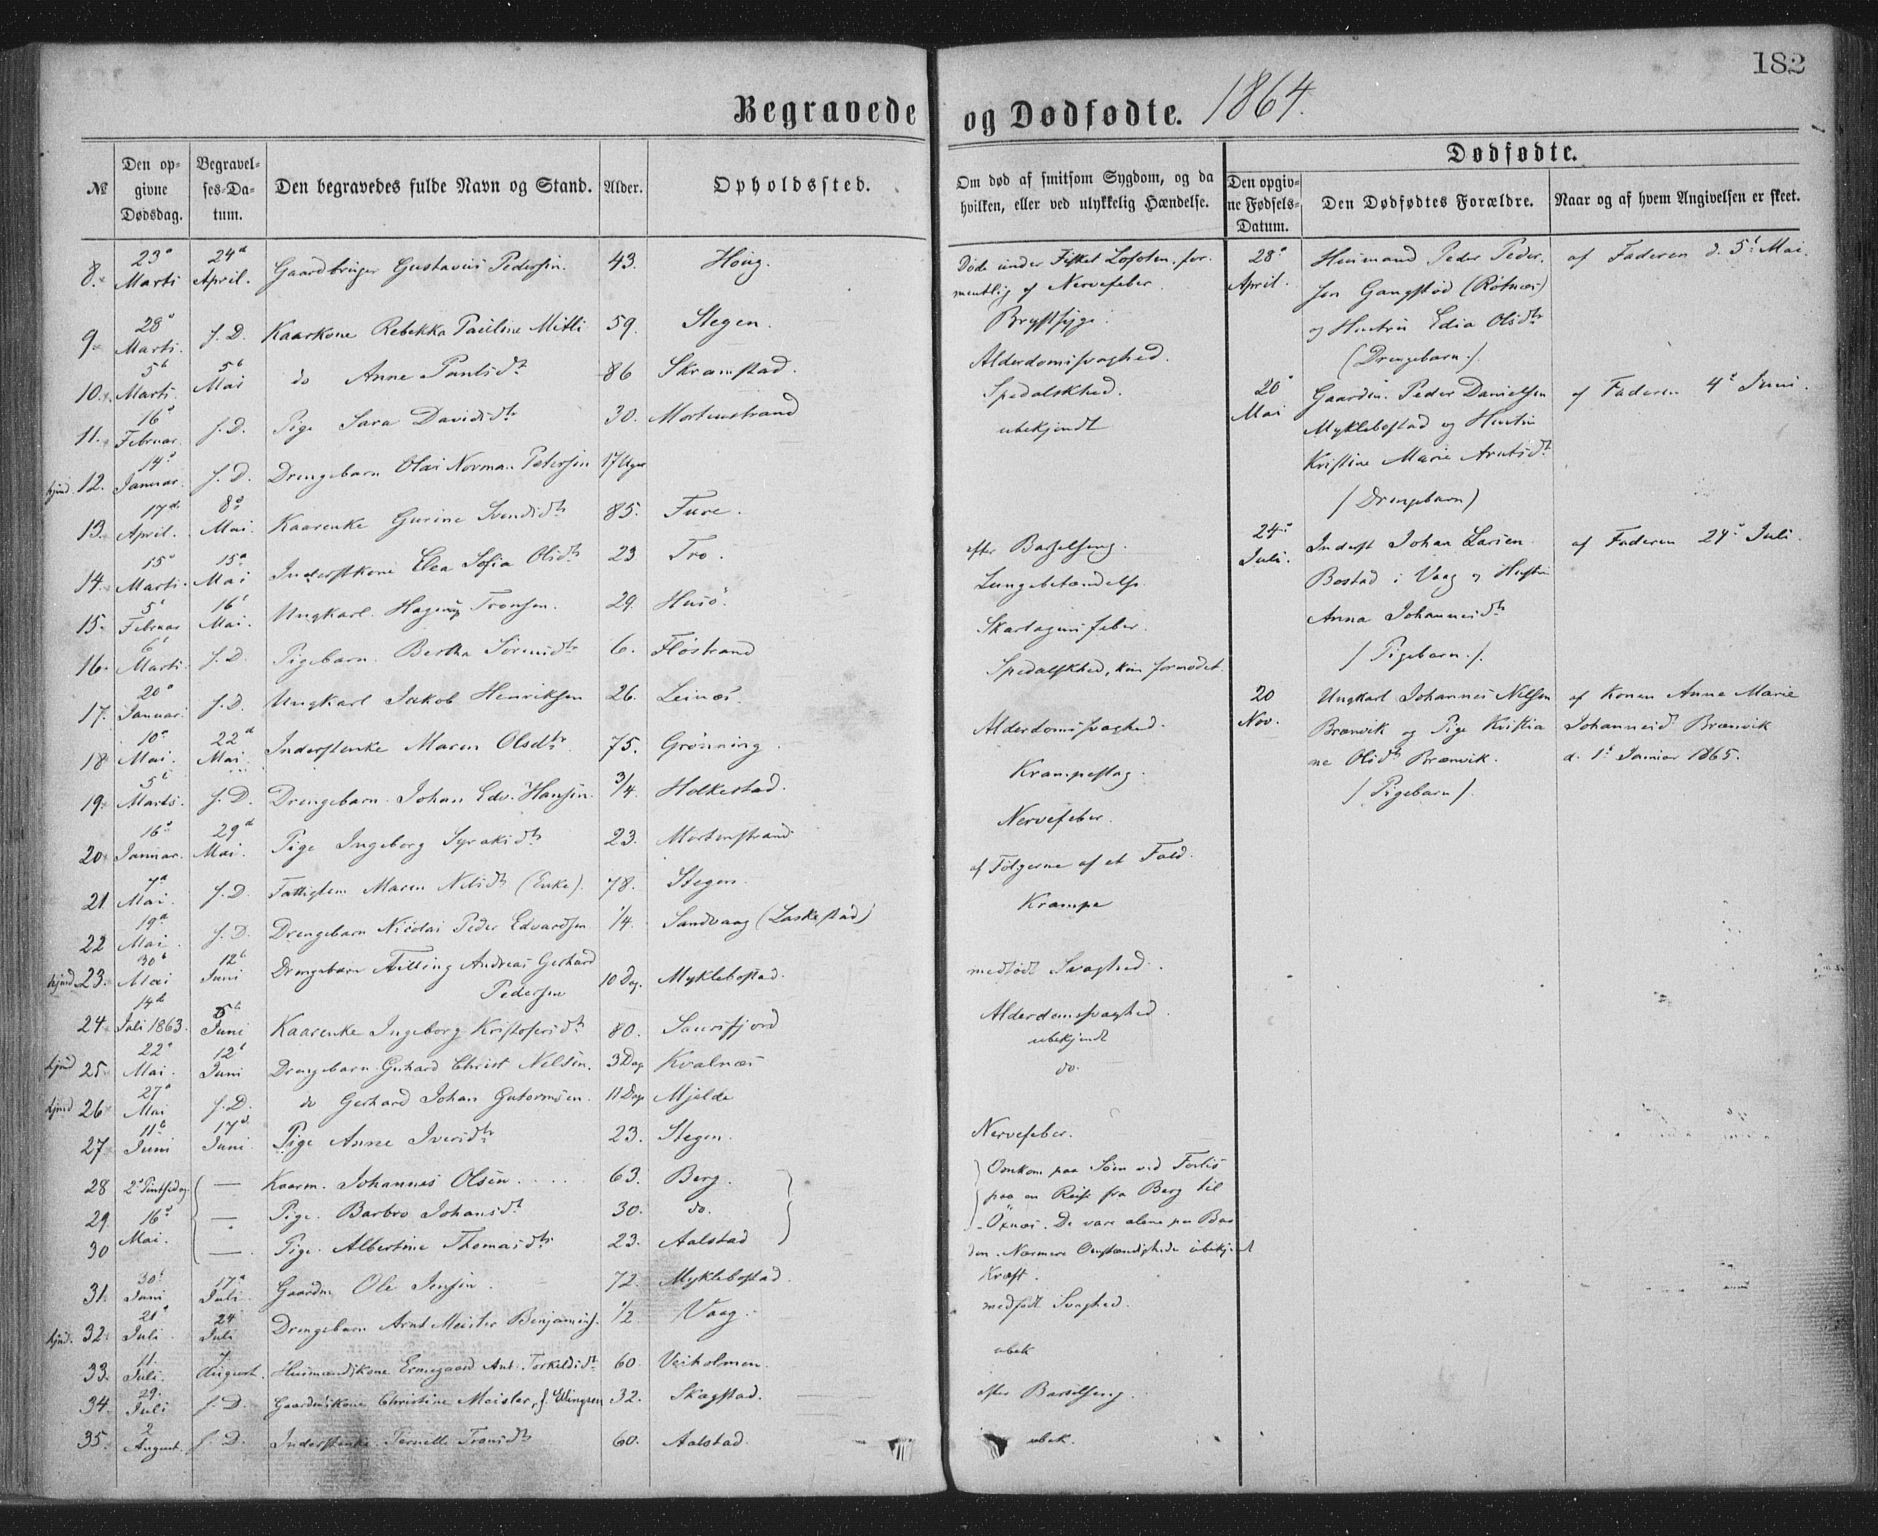 182
Begravede og Dødfødte. 1864.
№ Den opgivne Dødsdag. Begravelses-Datum. Den begravedes fulde Navn og Stand. Alder. Opholdssted. Om død af smitsom Sygdom, og da hvilken, eller ved ulykkelig Hændelse.
Dødfødte.
Den opgivne Fødsels-Datum. Den Dødfødtes Forældre. Naar og af hvem Angivelsen er skeet.
8. 23d Marts 24d April. Gaardbruger Gustavus Pedersen. 43. Høug. Døde under Fisket Lofoten, formentlig af Nervefeber
9. 28d Marts. s. D. Kaarkone Rebekka Pauline 59. Stegen. Brystsyge
10. 5t Marts. 5t Mai do Anne Paulsdtr 86 Skramstad. Alderdomssvaghed.
11. 16d Februar. s. D. Pige Sara Davidsdtr 30. Mortenstrand Spedalskhed.
kjend. 12. 14d Januar. s. D. Drengebarn Olai Norman Petersen 17 Uger ubekjendt
13. 17d April. 8d Mai. Kaarenke Gurine Svendsdtr 85. Fure.
14. 15d Marts. 15d Mai Inderstkone Elea Sofia Olsdtr 23 Tro. efter Barselseng.
15. 5t Februar 16t Mai. Ungkarl. Hagerup Tronsen. 29. Husö. Lungebetændelse.
16. 6t Marts. s. D. Pigebarn. Bertha Sörensdtr 6. Flöstrand Skarlagensfeber.
17. 20d Januar. s. D. Ungkarl Jakob Henriksen 26. Leinæs. Spedalskhed, kun formodet.
18 10d Mai. 22d Mai. Inderstenke Maren Olsdtr 75. Grønning. Alderdomssvaghed.
19. 5t Marts. s. D. Drengebarn. Johan Edv. Hansen. 3/4. Holkestad. Krampeslag.
20. 16d Januar. 29d Mai. Pige Ingeborg Syraksdtr 23. Mortenstrand Nervefeber.
21 7d Mai. s. D. Fattiglem Maren Nilsdtr (Enke). 78. Stegen. af Følgerne af et Fald.
22 19d Mai s. D. Drengebarn Nicolai Peder Edvardsen 1/4. Sandvaag (Laskestad) Krampe
kjend 23. 30t Mai 12t Juni Drengebarn Andreas Gerhard Pedersen 10 Dag. Myklebostad. medfødt Svaghed.
24. 14d Juli 1863. 5t Juni Kaarenke Ingeborg Kristofersdtr 80. Saursfjord Alderdomssvaghed.
kjend 25. 22d Mai. 12t Juni Drengebarn. Gerhard Christ Nilsen. 3 Dag Kvalnæs ubekjendt
kjend 26. 27d Mai s. D. do Gerhard Johan Gutormsen. 11 Dage Mjelde do.
27 11t Juni 17d Juni Pige Anne Iversdtr 23. Stegen. Nervefeber.
28 2d Pintsedag — Kaarm. Johannes Olsen 63. Berg. Omkom paa Søen ved
29. 16d Mai. — Pige. Barbro Johansdtr 30. do. paa en Reise fra Berg til
30 — Pige. Albertine Thomasdtr 23. Aalstad Öxnæs. De vare alene paa Baaden. Nærmere Omstændigheder ubekjendt
31. 30t Juni 17d Juli. Gaardm. Ole Jensen. 72. Myklebostad. Kræft.
kjend. 32. 21d Juli 24 Juli Drengebarn Arnt Meisler Benjamins. 1/2. Vaag. medfødt Svaghed.
33. 11. Juli. 7 August. Huusmandskone Ermegaard Ant. Torkeldsdtr 60. Veiholmen. ubek
34. 29. Juli s. D. Gaardmskone Christine Meisler, f. Ellingsen 32. Skagstad. efter Barselseng.
35. 2 August. s. D. Inderstenke. Pernelle Tronsdtr 60. Aalstad. ubek.
28d April. Huusmand Peder Pedersen Gangstød (Rötnæs) og Hustru Edia Olsdtr (Drengebarn.) af Faderen d. 5t Mai.
20d Mai Gaardm. Peder Danielsen Myklebostad og Hustru Kristine Marie Arntsdtr (Drengebarn) af Faderen 4d Juni.
24d Juli. Inderst Johan Larsen Bostad i Vaag og Hustru Anna Johannesdtr (Pigebarn.) af Faderen 24d Juli.
20 Nov. Ungkarl Johannes Nilsen Brænvik og Pige Kristiane Olsdtr Brænvik. (Pigebarn) af Konen Anne Marie Johannesd. Brænvik d. 1d Januar 1865.